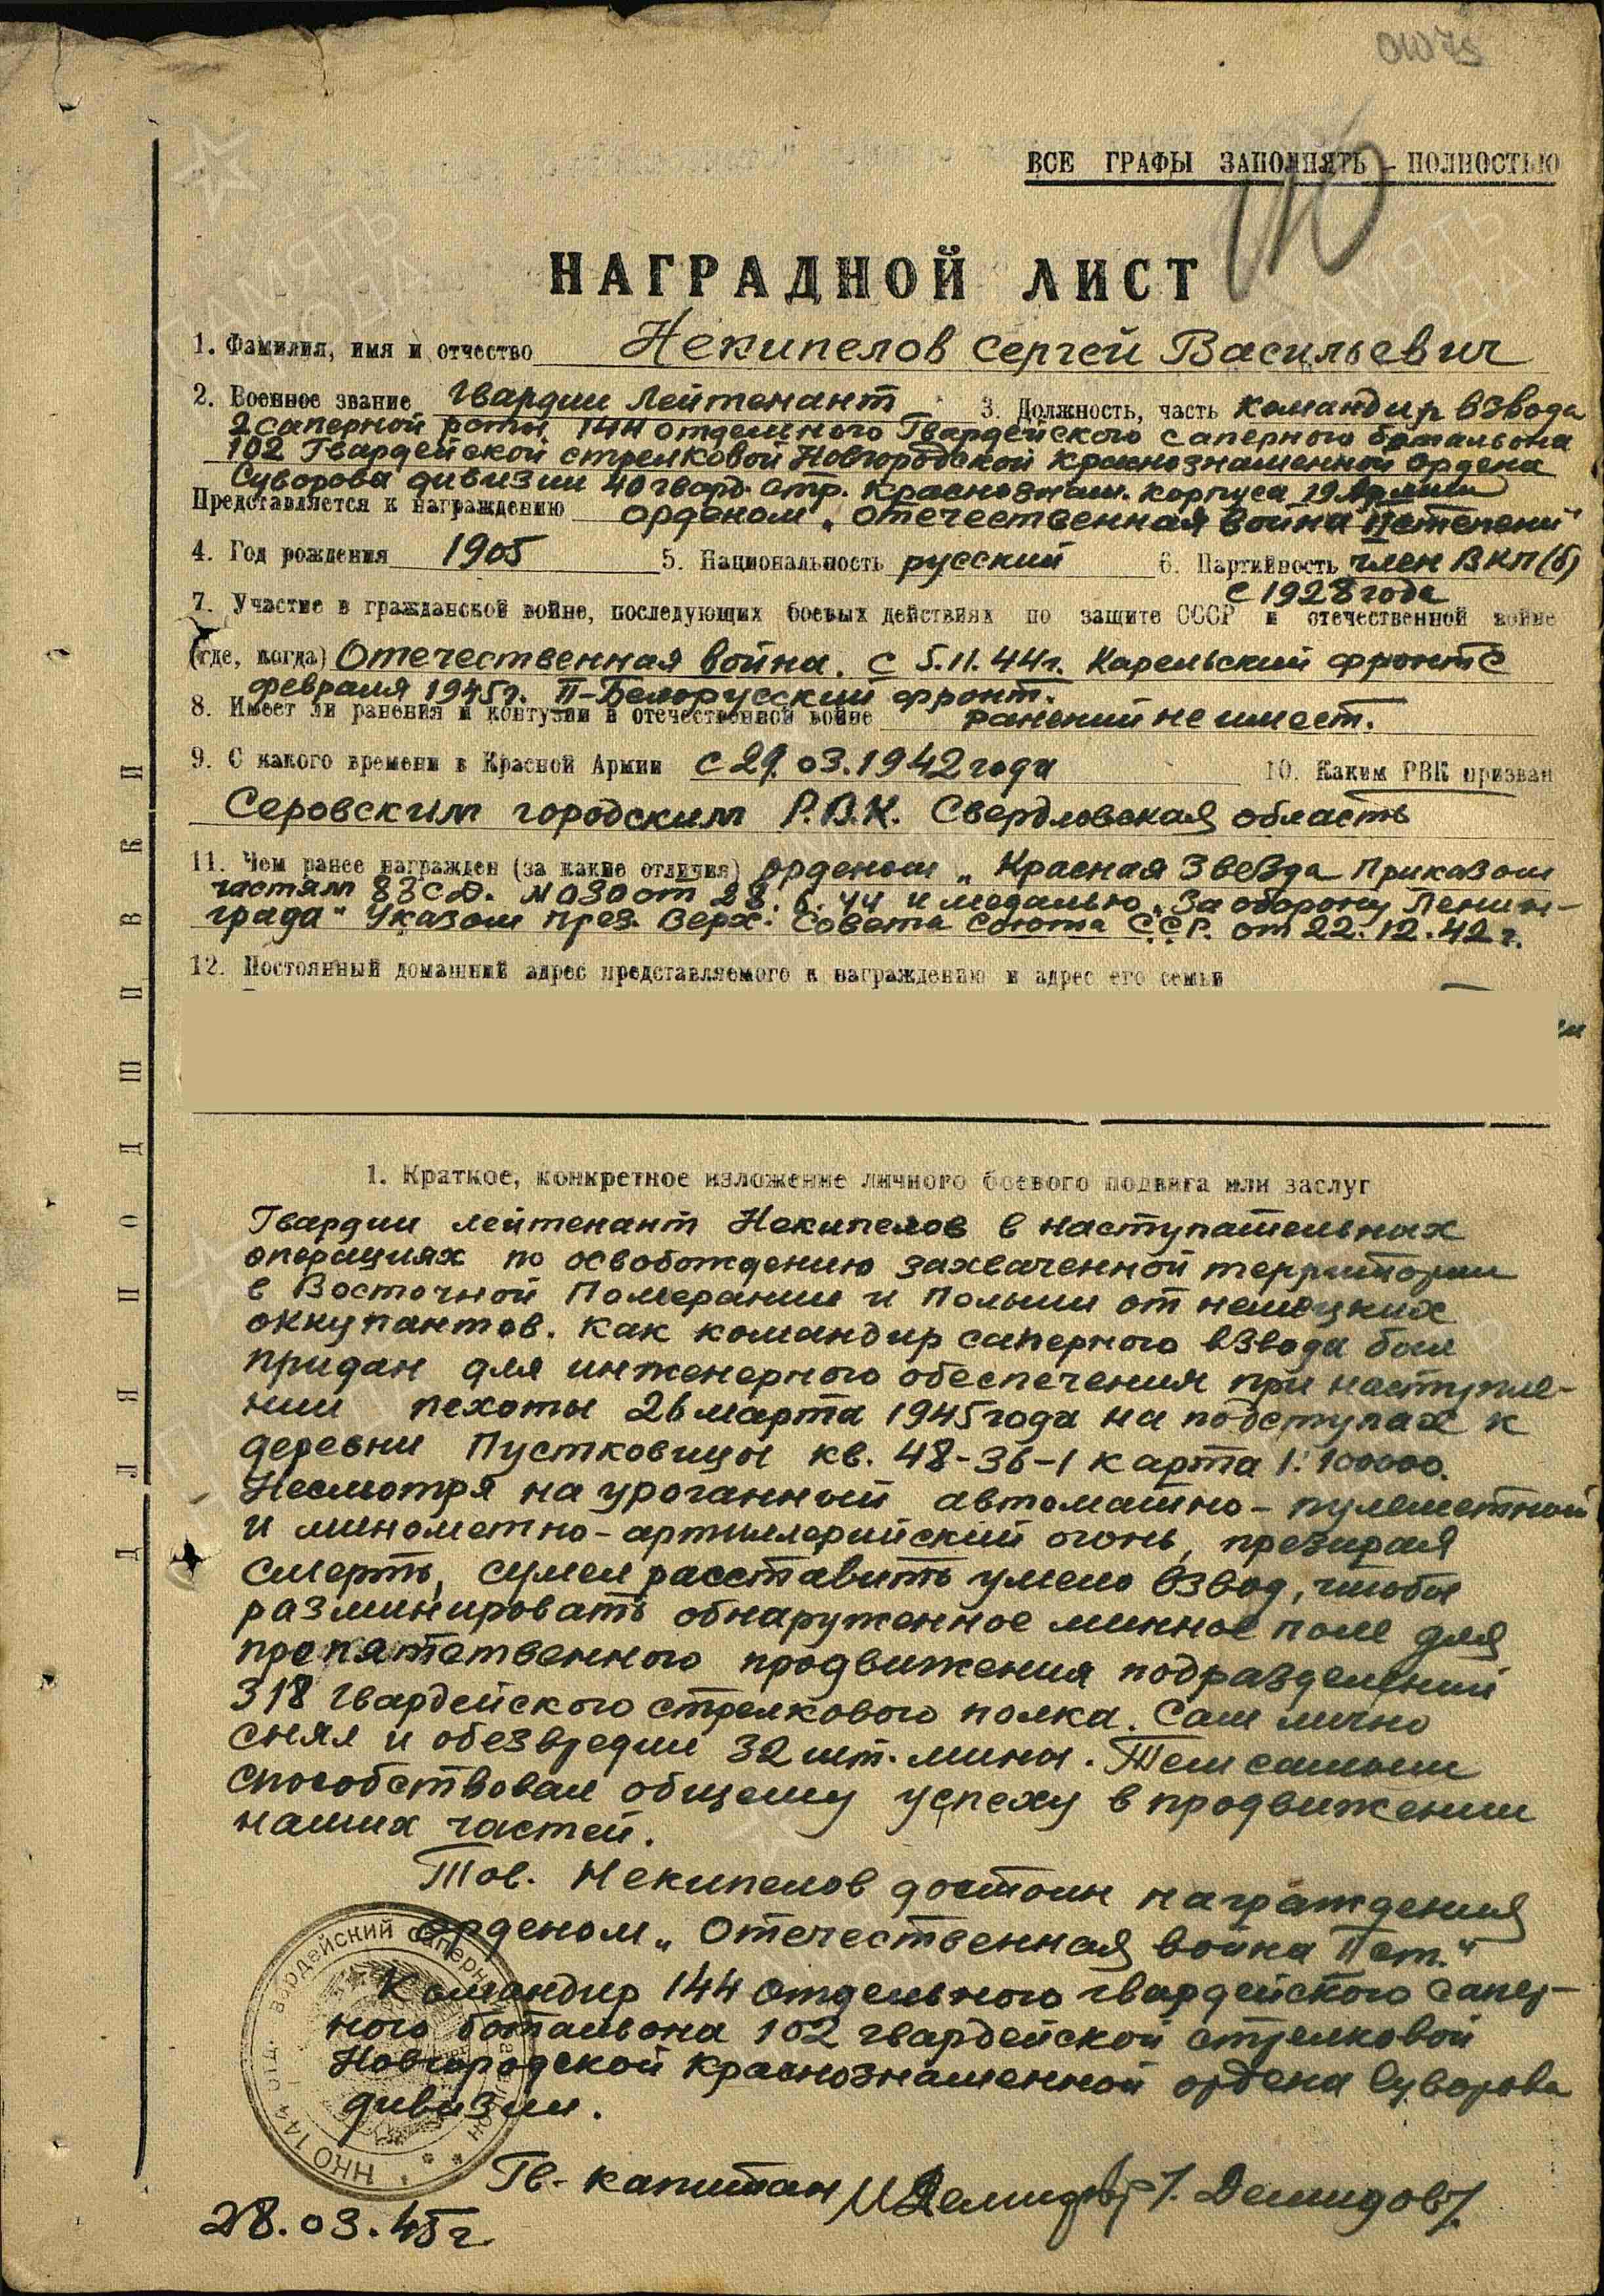 01075
ВСЕ ГРАФЫ ЗАПОЛНЯТЬ - ПОЛНОСТЬЮ
НАГРАДНОЙ ЛИСТ
1. Фамилия, имя и отчество Некипелов Сергей Васильевич
2. Военное звание Гвардии Лейтенант 3. Должность, часть командир взвода
2 саперной роты 144 отдельного Гвардейского саперного батальона
102 Гвардейской стрелковой Новгородской Краснознаменной ордена
Суворова дивизии 40 гвард. стр. Краснознам. корпуса 19 Армии
Представляется к награждению орденом „Отечественная война II степени"
4. Год рождения 1905 5. Национальность русский 6. Партийность член ВКП(б)
с 1928 года
7. Участие в гражданской войне, последующих боевых действиях по защите СССР и отечественной войне
(где, когда) Отечественная война. С 5.11.44г. Карельский фронт с
февраля 1945г. II-Белорусский фронт.
8. Имеет ли ранения и контузии в отечественной войне ранений не имеет.
9. С какого времени в Красной Армии с 29.03.1942 года 10. Каким РВК призван
Серовским городским Р.В.К. Свердловская область
11. Чем ранее награжден (за какие отличия) орденом „Красная Звезда Приказом
частям 83 СД. № 030 от 28.6.44 и медалью „За оборону Ленин-
града" Указом През. Верх. Совета Союта С.С.Р. от 22.12.42г.
12. Постоянный домашний адрес представляемого к награждению и адрес его семьи
1. Краткое, конкретное изложение личного боевого подвига или заслуг
Гвардии лейтенант Некипелов в наступательных
операциях по освобождению захваченной территории
в Восточной Померании и Польши от немецких
оккупантов. Как командир саперного взвода был
придан для инженерного обеспечения при наступле-
нии пехоты 26 марта 1945 года на подступах к
деревни Пустковицы кв. 48-36-1 карта 1:100000.
Несмотря на ураганный автоматно-пулеметной
и минометно-артиллерийский огонь, презирая
смерть, сумел расставить умело взвод, чтобы
разминировать обнаруженное минное поле для
препятственного продвижения подразделений
318 гвардейского стрелкового полка. Сам лично
снял и обезвредил 32 шт. мины. Тем самым
способствовал общему успеху в продвижении
наших частей.
Тов. Некипелов достоин награждения
орденом „Отечественная война II ст."
Командир 144 отдельного гвардейского сапер-
ного батальона 102 гвардейской стрелковой
Новгородской Краснознаменной ордена Суворова
дивизии.
Гв. капитан Демидов /Демидов/.
28.03.45г.
НКО 144 отд. гвардейский саперный батальон
ДЛЯ ПОДШИВКИ
ПАМЯТЬ НАРОДА